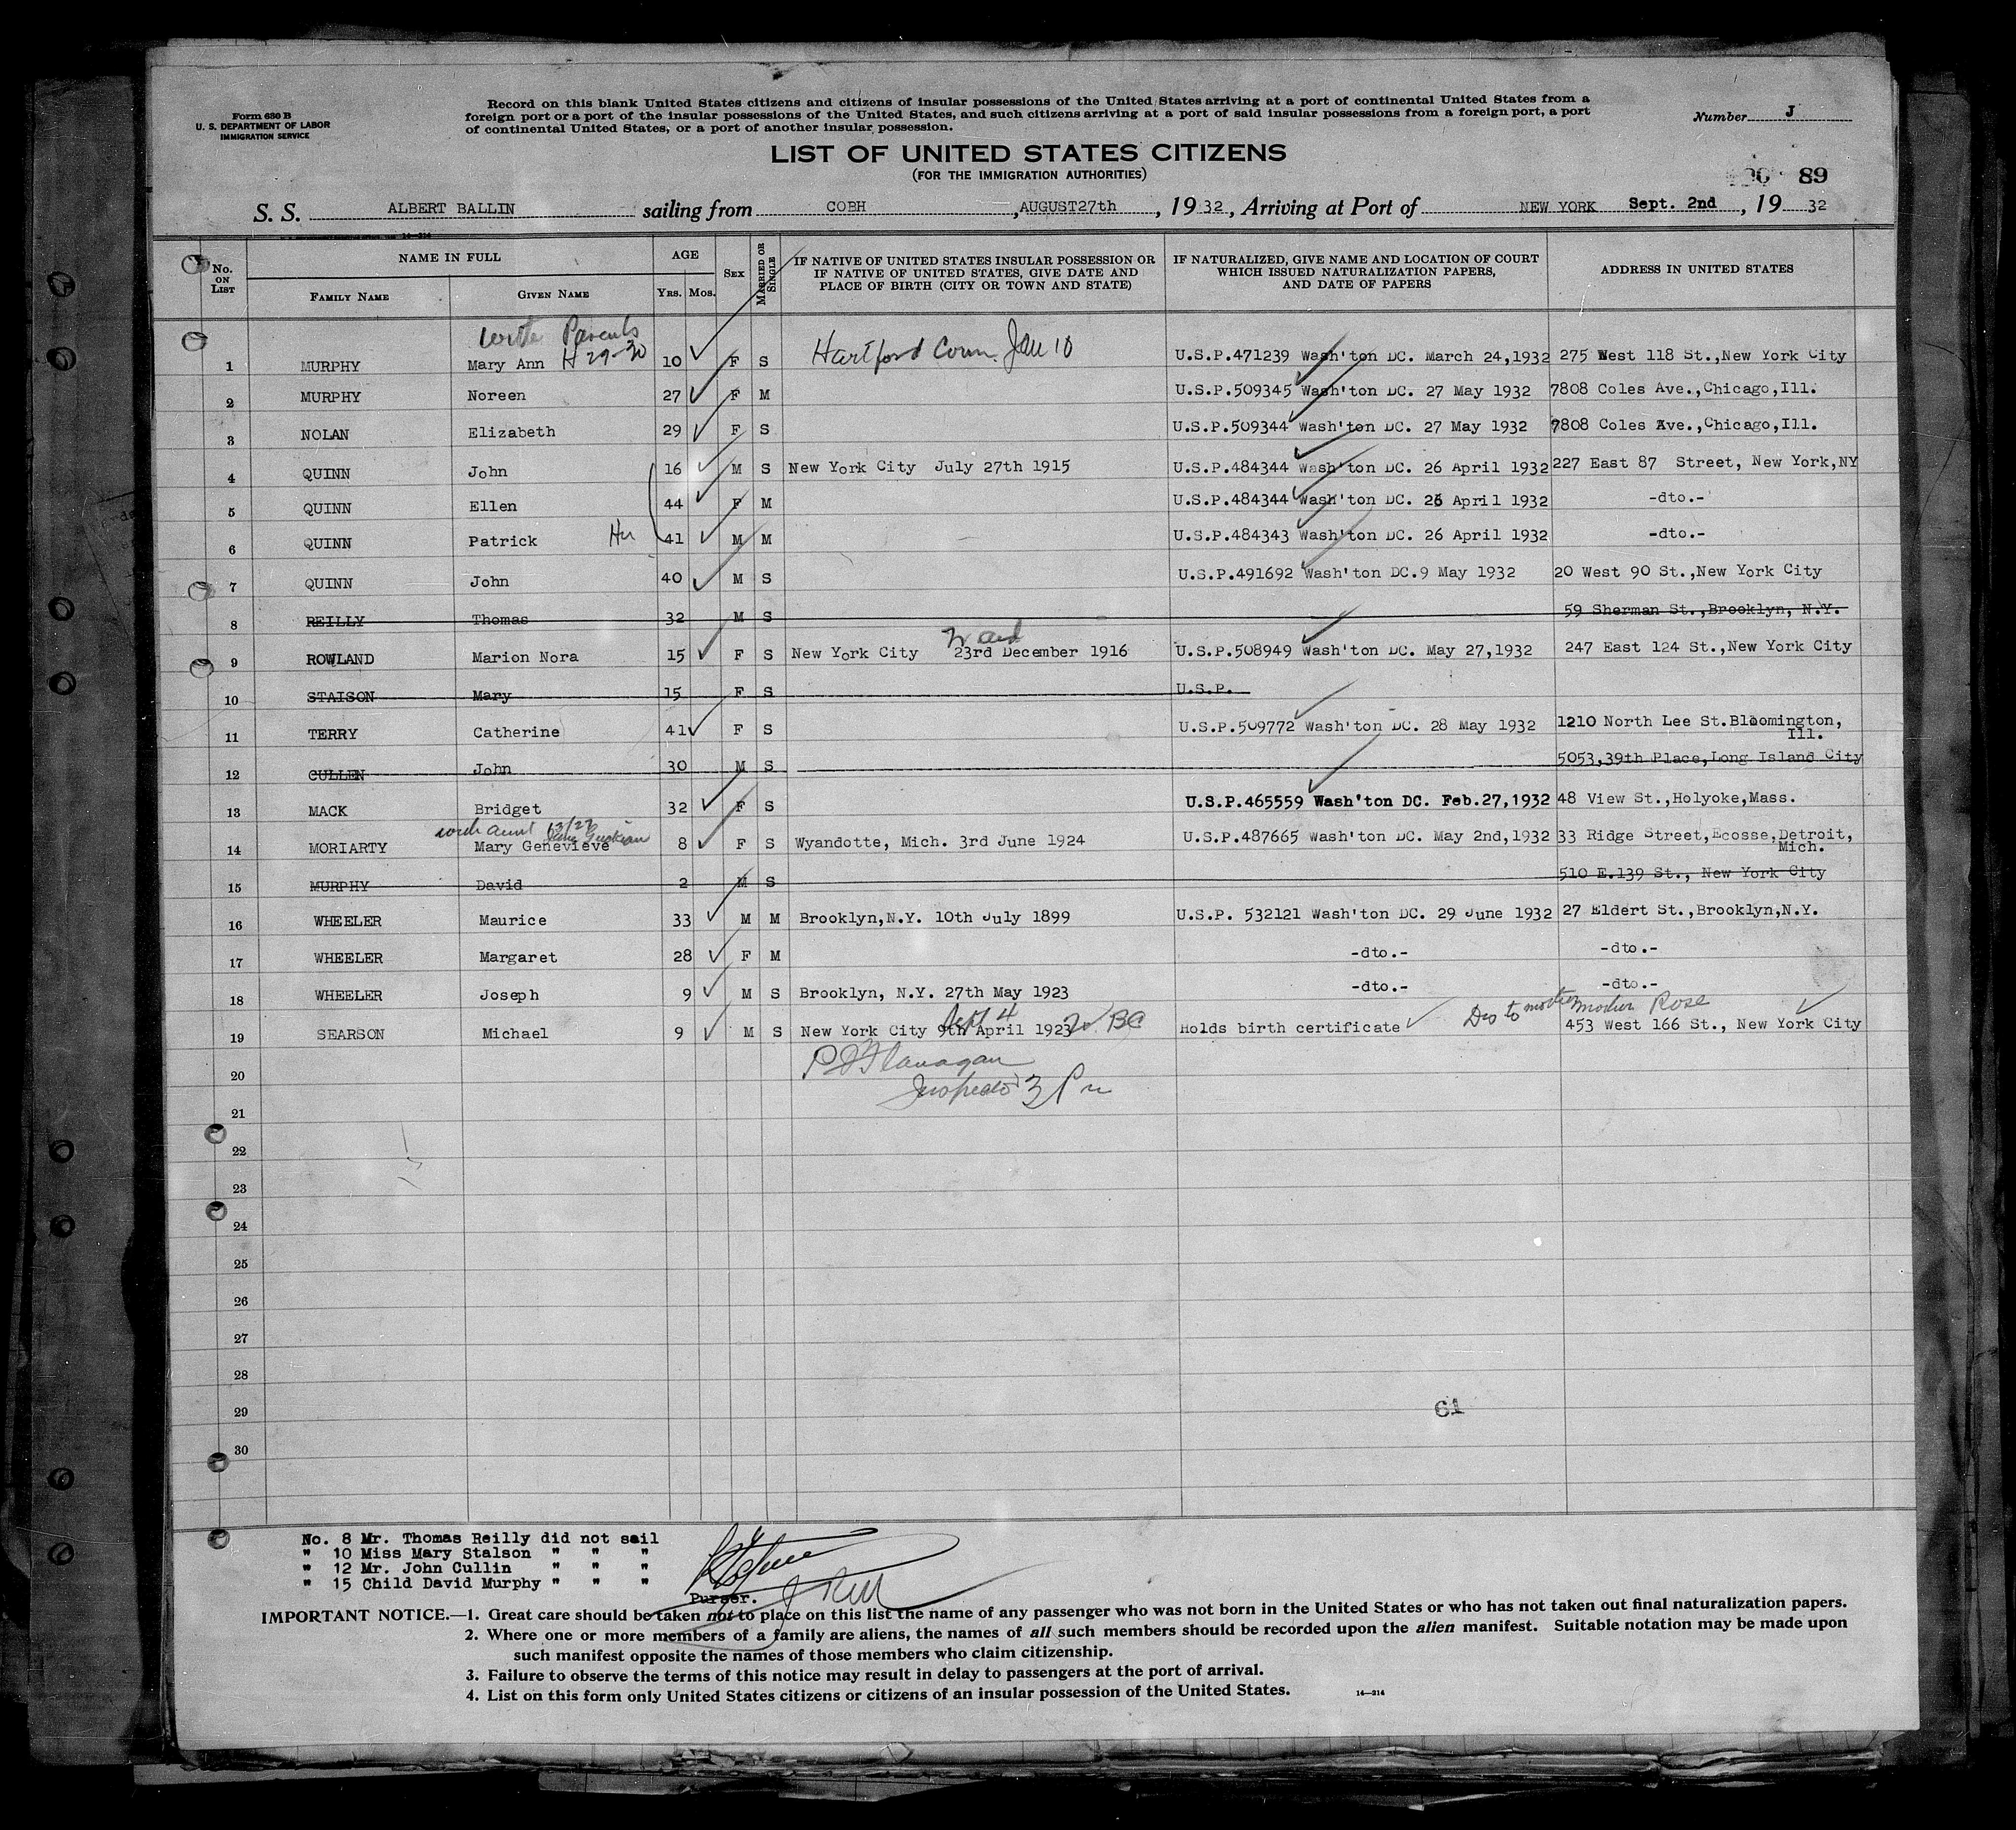 Form 630 B
U. S. DEPARTMENT OF LABOR
IMMIGRATION SERVICE
Record on this blank United States citizens and citizens of insular possessions of the United States arriving at a port of continental United States from a
foreign port or a port of the insular possessions of the United States, and such citizens arriving at a port of said insular possessions from a foreign port, a port
of continental United States, or a port of another insular possession.
Number J
LIST OF UNITED STATES CITIZENS
(FOR THE IMMIGRATION AUTHORITIES)
89
S. S. ALBERT BALLIN sailing from COBH, AUGUST27th, 1932, Arriving at Port of NEW YORK Sept. 2nd, 19 32
No. ON LIST
NAME IN FULL
FAMILY NAME
GIVEN NAME
AGE
YRS. MOS.
SEX
MARRIED OR SINGLE
IF NATIVE OF UNITED STATES INSULAR POSSESSION OR
IF NATIVE OF UNITED STATES, GIVE DATE AND
PLACE OF BIRTH (CITY OR TOWN AND STATE)
IF NATURALIZED, GIVE NAME AND LOCATION OF COURT
WHICH ISSUED NATURALIZATION PAPERS,
AND DATE OF PAPERS
ADDRESS IN UNITED STATES
with Parents
1 MURPHY Mary Ann H 29-30 10 F S Hartford Conn Jan 10 U.S.P.471239 Wash'ton DC. March 24,1932 275 West 118 St.,New York City
2 MURPHY Noreen 27 F M U.S.P.509345 Wash'ton DC. 27 May 1932 7808 Coles Ave.,Chicago,Ill.
3 NOLAN Elizabeth 29 F S U.S.P.509344 Wash'ton DC. 27 May 1932 7808 Coles Ave.,Chicago,Ill.
4 QUINN John 16 M S New York City July 27th 1915 U.S.P.484344 Wash'ton DC. 26 April 1932 227 East 87 Street, New York,NY
5 QUINN Ellen 44 F M U.S.P.484344 Wash'ton DC. 26 April 1932 -dto.-
6 QUINN Patrick 41 M M U.S.P.484343 Wash'ton DC. 26 April 1932 -dto.-
7 QUINN John 40 M S U.S.P.491692 Wash'ton DC.9 May 1932 20 West 90 St.,New York City
8 REILLY Thomas 32 M S 59 Sherman St.,Brooklyn, N.Y.
9 ROWLAND Marion Nora 15 F S New York City 23rd December 1916 U.S.P.508949 Wash'ton DC. May 27,1932 247 East 124 St.,New York City
10 STAISON Mary 15 F S U.S.P.
11 TERRY Catherine 41 F S U.S.P.509772 Wash'ton DC. 28 May 1932 1210 North Lee St.Bloomington,
Ill.
12 CULLEN John 30 M S 5053,39th Place,Long Island City
13 MACK Bridget 32 F S U.S.P.465559 Wash'ton DC. Feb.27,1932 48 View St.,Holyoke,Mass.
with aunt
14 MORIARTY Mary Genevieve 8 F S Wyandotte, Mich. 3rd June 1924 U.S.P.487665 Wash'ton DC. May 2nd,1932 33 Ridge Street,Ecosse,Detroit,
Mich.
15 MURPHY David 2 M S 510 E.139 St., New York City
16 WHEELER Maurice 33 M M Brooklyn,N.Y. 10th July 1899 U.S.P. 532121 Wash'ton DC. 29 June 1932 27 Eldert St.,Brooklyn,N.Y.
17 WHEELER Margaret 28 F M -dto.- -dto.-
18 WHEELER Joseph 9 M S Brooklyn, N.Y. 27th May 1923 -dto.- -dto.-
Sept 4 Dis to mother mother Rose
19 SEARSON Michael 9 M S New York City 9th April 1923 BC Holds birth certificate 453 West 166 St., New York City
20 P J Flanagan
Inspector 3 Pm
21
22
23
24
25
26
27
28
29
61
30
No. 8 Mr. Thomas Reilly did not sail
" 10 Miss Mary Stalson " " "
" 12 Mr. John Cullin " " "
" 15 Child David Murphy " " "
Purser.
IMPORTANT NOTICE.—1. Great care should be taken not to place on this list the name of any passenger who was not born in the United States or who has not taken out final naturalization papers.
2. Where one or more members of a family are aliens, the names of all such members should be recorded upon the alien manifest. Suitable notation may be made upon
such manifest opposite the names of those members who claim citizenship.
3. Failure to observe the terms of this notice may result in delay to passengers at the port of arrival.
4. List on this form only United States citizens or citizens of an insular possession of the United States.
14—214